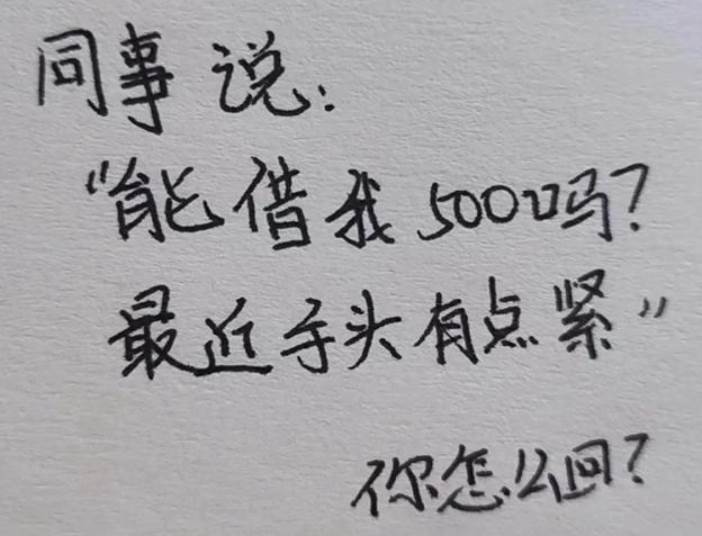 同事说：
“能借我500吗？
最近手头有点紧”
你怎么回？